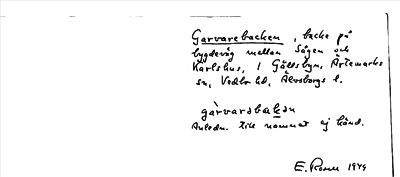 Garvarebacken, backe på
bygdeväg mellan Sågen och
Karlshus, i Gällsbyn, Ärtemarks
sn, Vedbo hd, Älvsborgs l.
gàrvarəbakən
Anledn. till namnet ej känd.
E. Rosen 1949